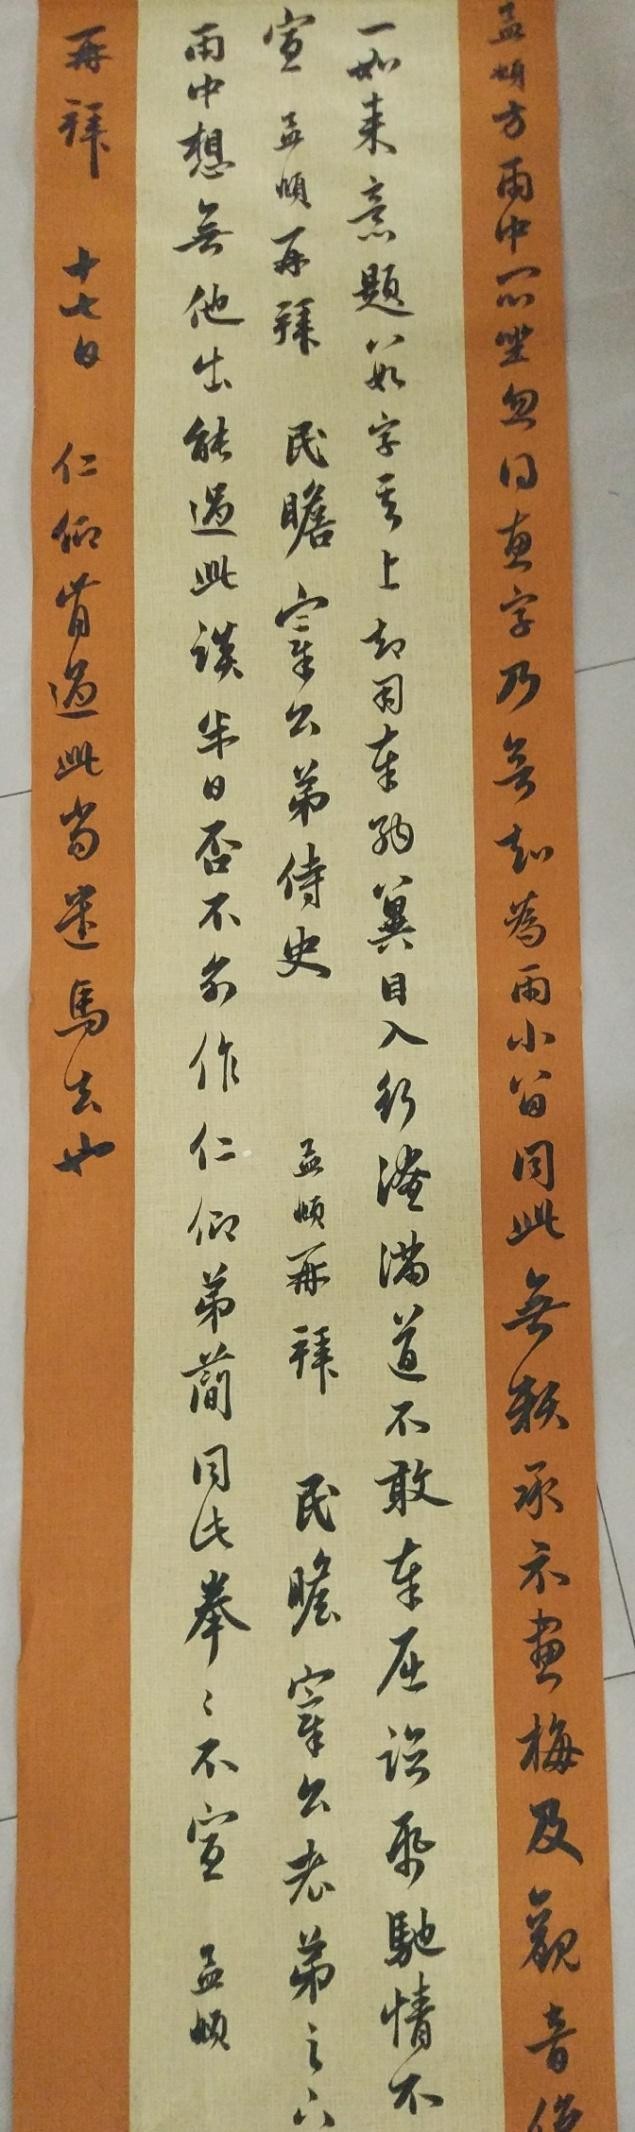 孟頫方雨中悶坐忽得惠字乃無知為雨小留同此無聊承示画梅及觀音像
一如来意題數字其上却用奉納冀目入行潦滿道不敢奉屈臨紙馳情不
宣 孟頫再拜 民瞻宰公弟侍史 孟頫再拜 民瞻宰公老弟之右
雨中想無他出能過此談半日否不別作仁仰弟簡同此拳〻不宣 孟頫
再拜 十七日 仁仰肯過此當遣馬去也